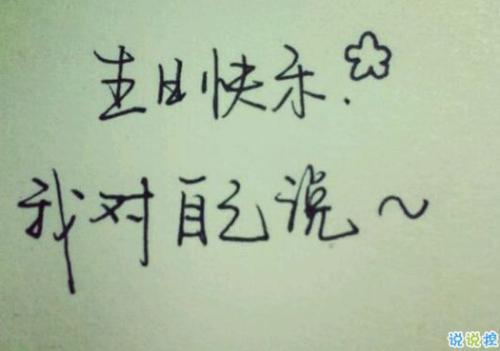 生日快乐.
我对自己说~
说说控